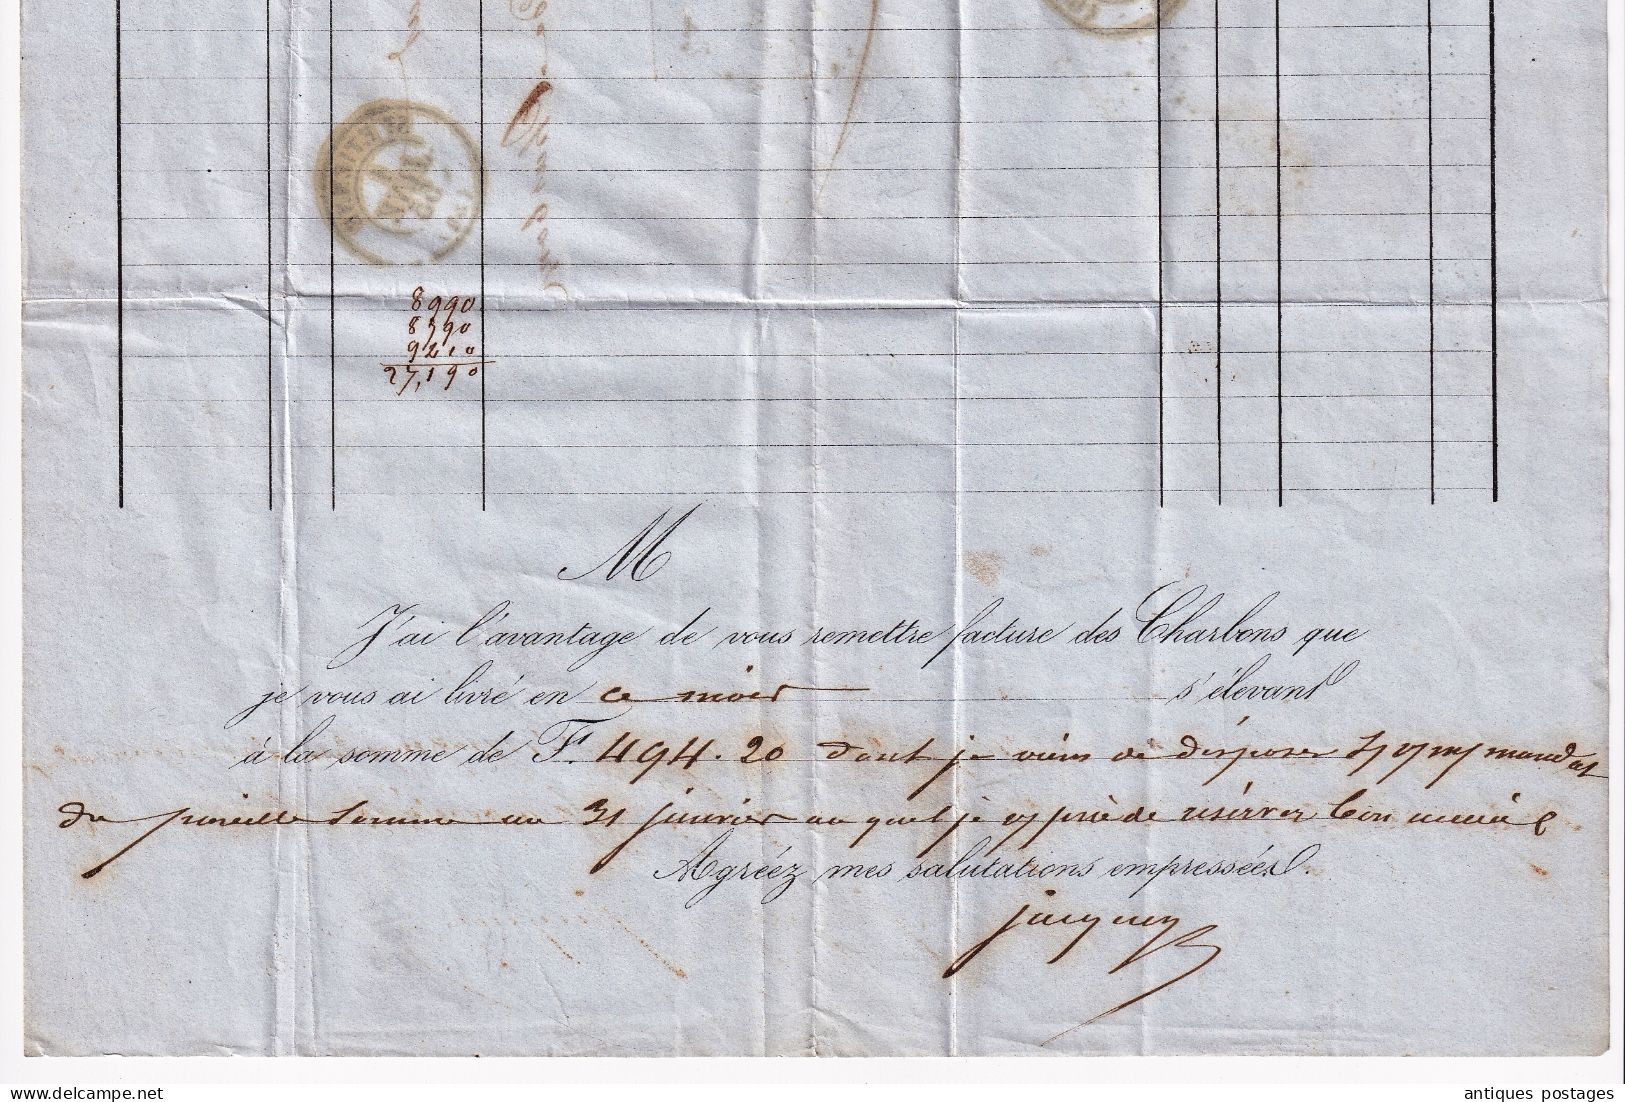 8990
8990
9210
27,190
M
J'ai l'avantage de vous remettre facture des Charbons que
je vous ai livré en ce mois s'élevant
à la somme de F. 494.20 dont je viens de disposer mandat
de pareille somme au 31 janvier au quel je prie de réserver bon accueil
Agréez mes salutations empressées.
antiques postages